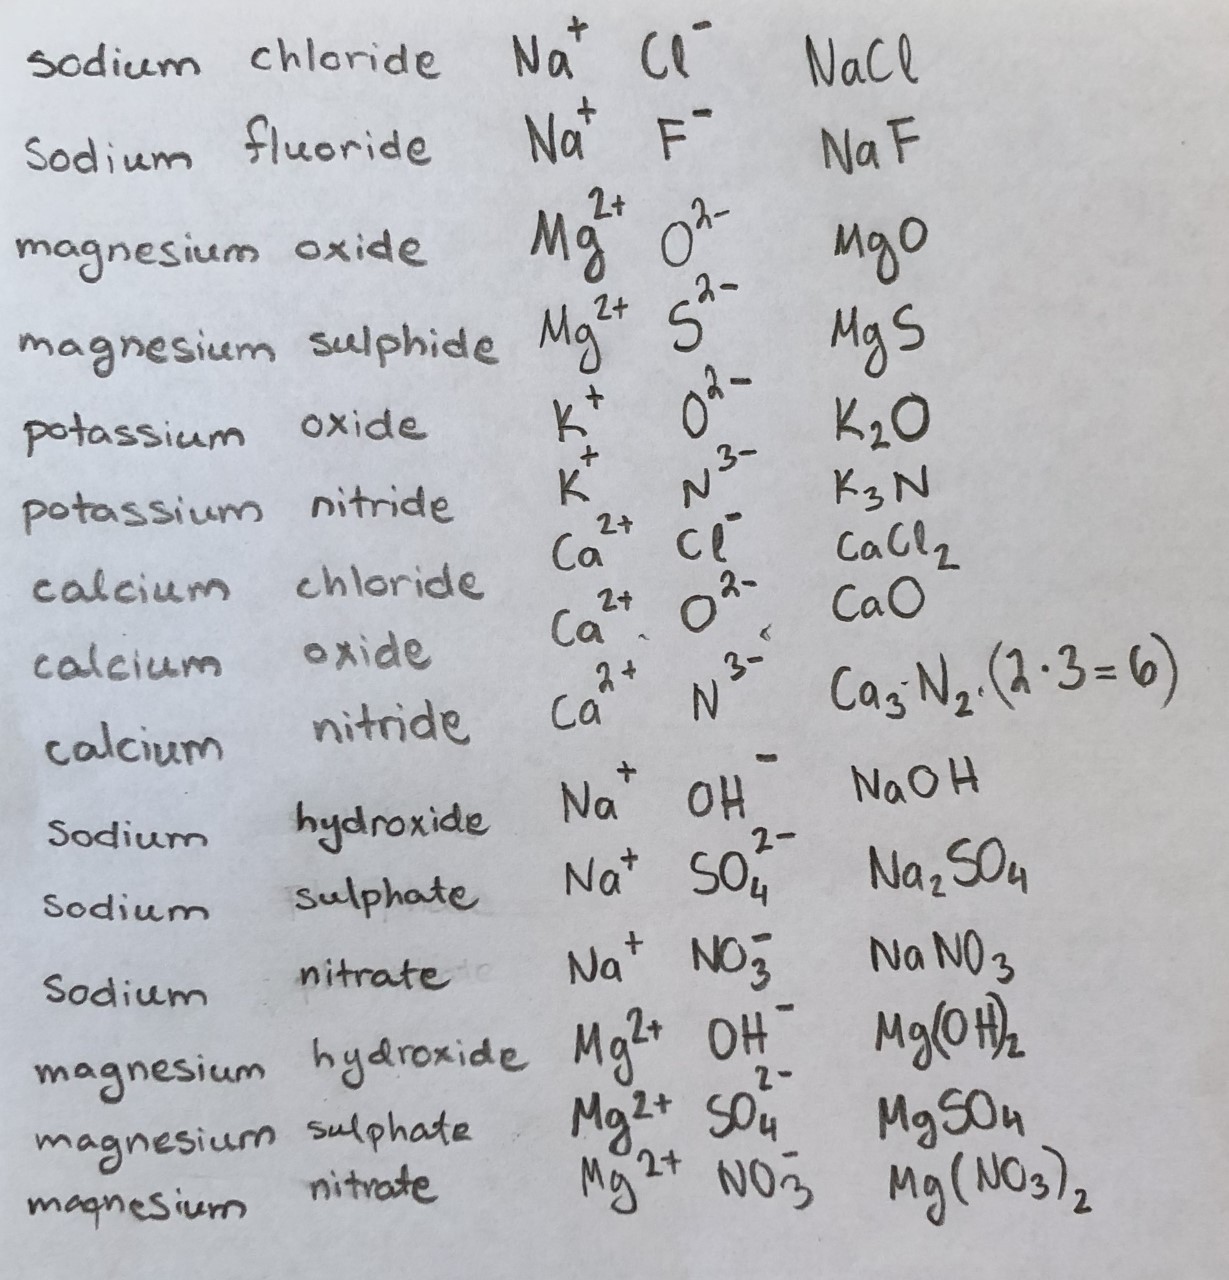 sodium chloride Na⁺ Cl⁻ NaCl
Sodium fluoride Na⁺ F⁻ NaF
magnesium oxide Mg²⁺ O²⁻ MgO
magnesium sulphide Mg²⁺ S²⁻ MgS
potassium oxide K⁺ O²⁻ K₂O
potassium nitride K⁺ N³⁻ K₃N
calcium chloride Ca²⁺ Cl⁻ CaCl₂
calcium oxide Ca²⁺ O²⁻ CaO
calcium nitride Ca²⁺ N³⁻ Ca₃·N₂.(2·3=6)
Sodium hydroxide Na⁺ OH⁻ NaOH
sodium sulphate Na⁺ SO₄²⁻ Na₂SO₄
Sodium nitrate Na⁺ NO₃⁻ NaNO₃
magnesium hydroxide Mg²⁺ OH⁻ Mg(OH)₂
magnesium sulphate Mg²⁺ SO₄²⁻ MgSO₄
magnesium nitrate Mg²⁺ NO₃⁻ Mg(NO₃)₂